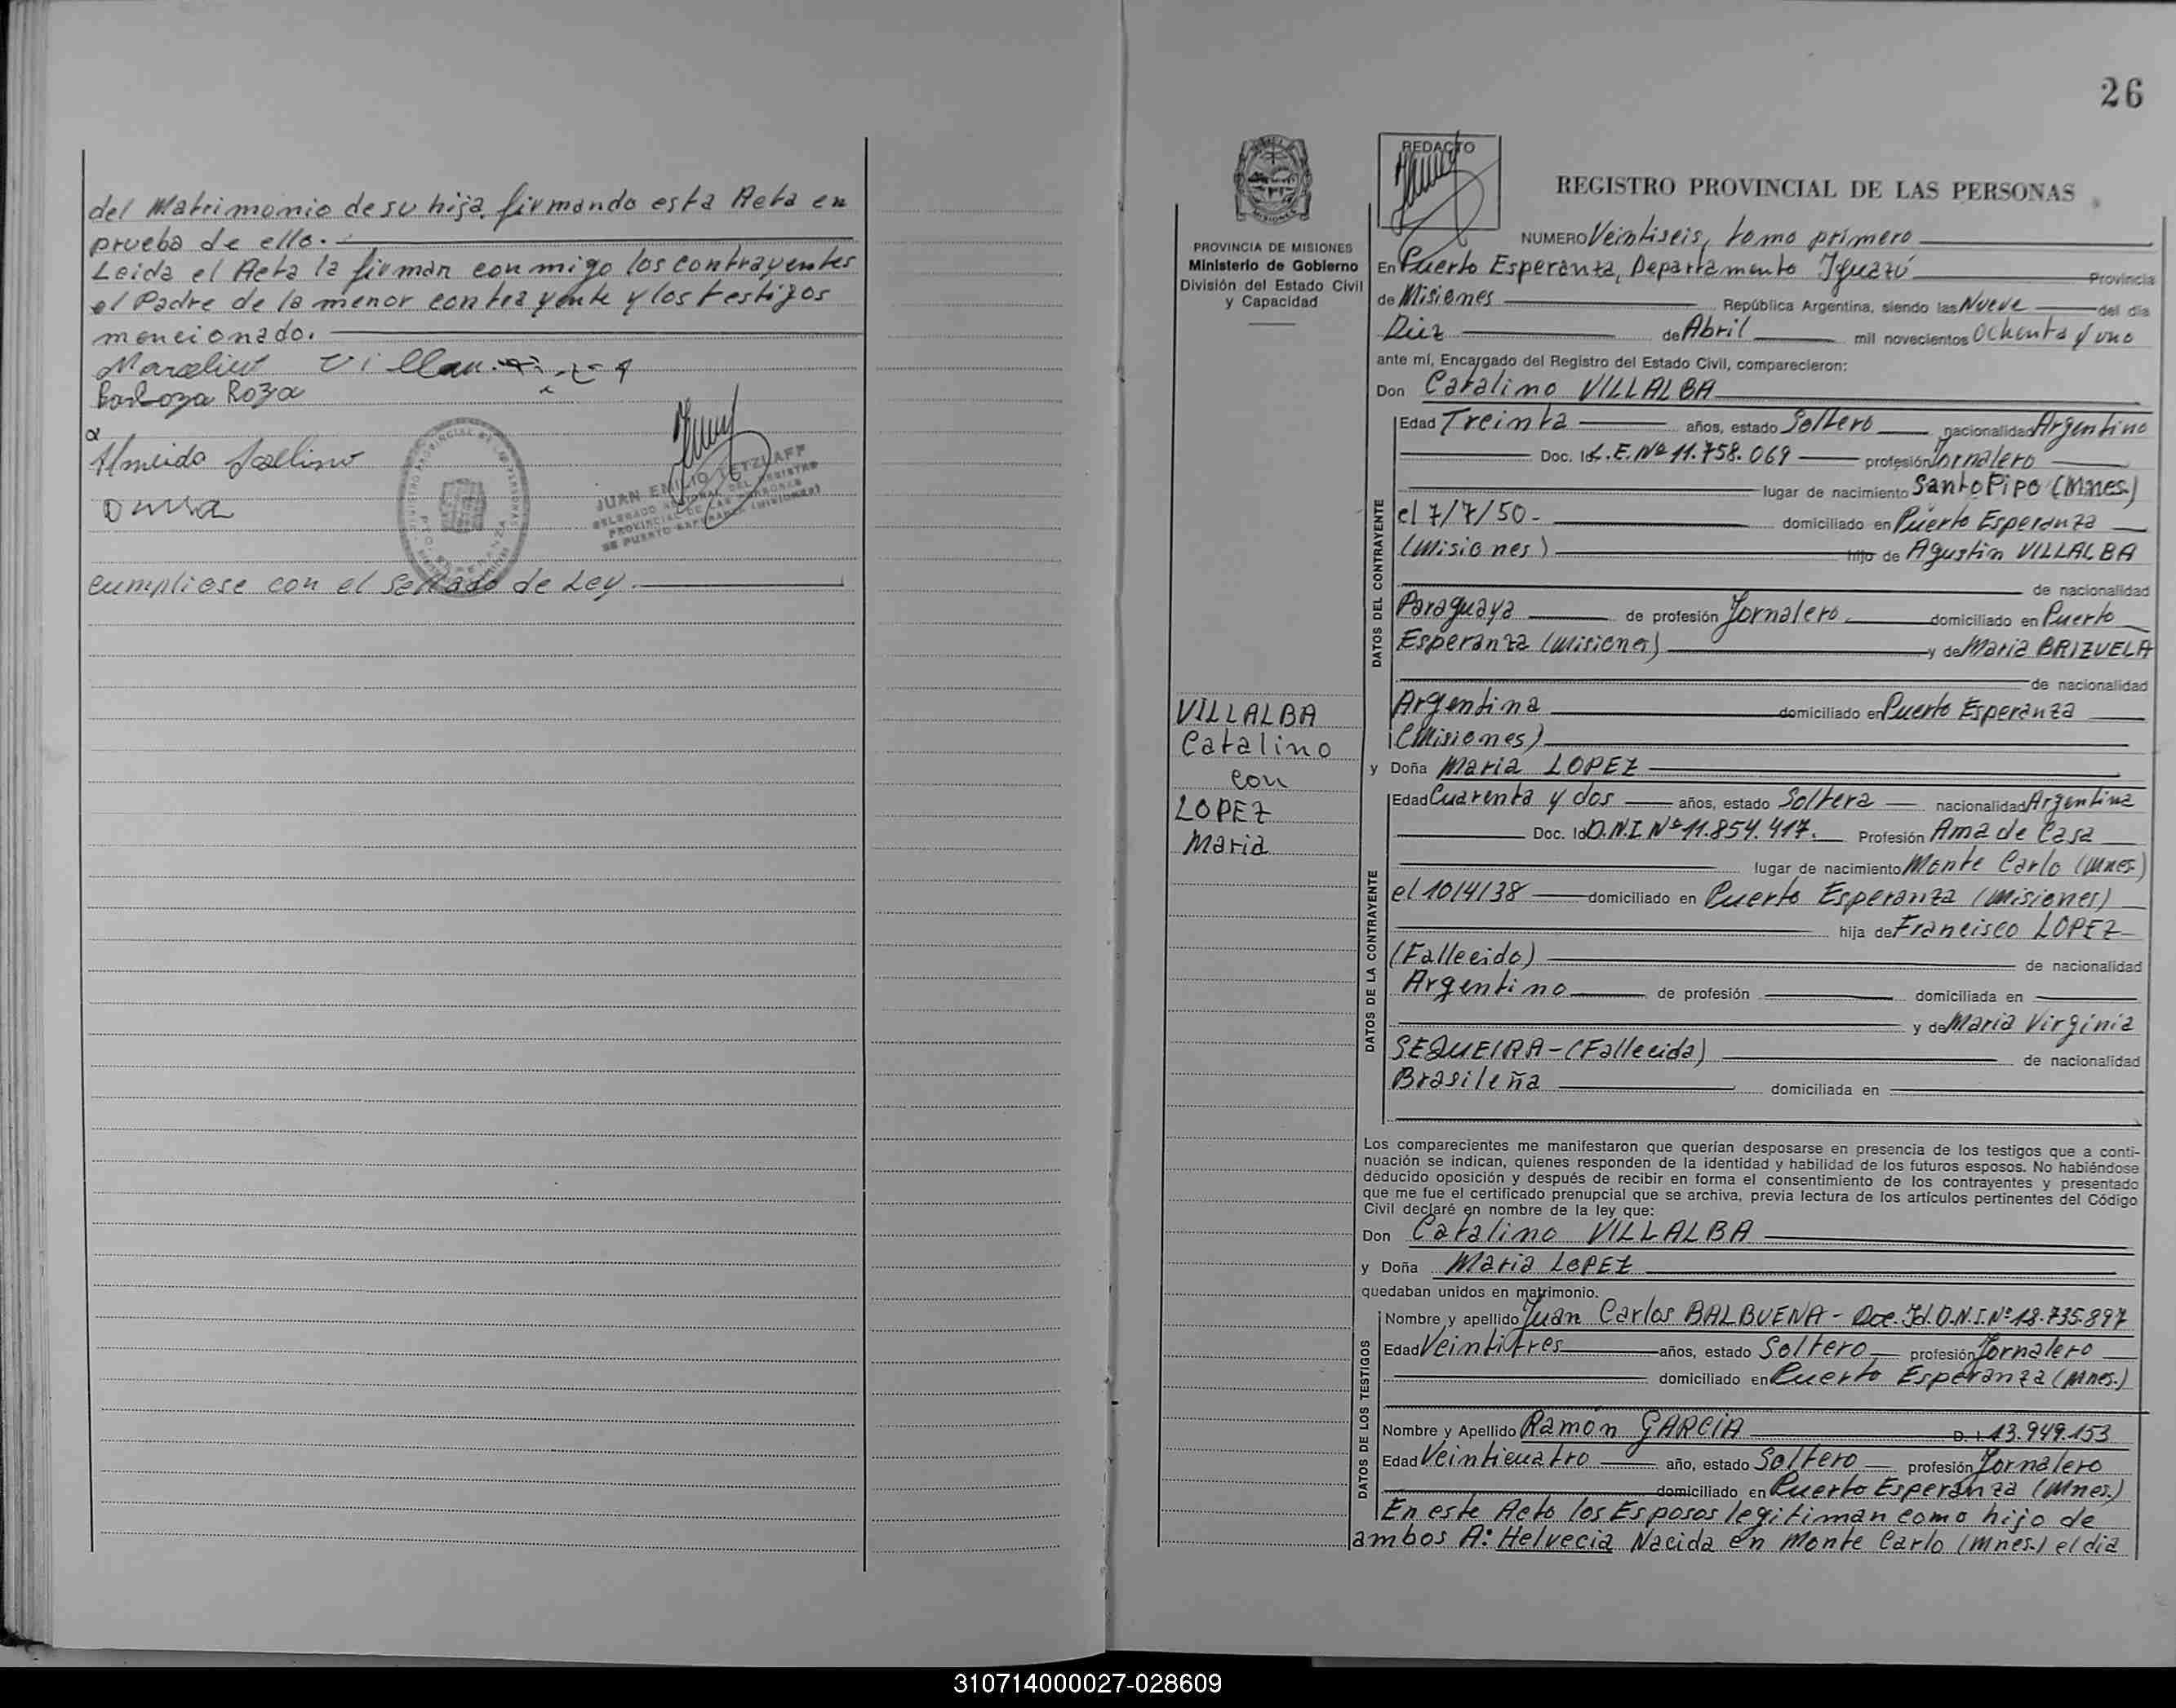 del Matrimonio de su hija, firmando esta Acta en
prueba de ello.
Leida el Acta la firman conmigo los contrayentes
el Padre de la menor contrayente y los testigos
mencionado.
Marcelino
Barboza Roza
Almeida
JUAN EMILIO RETZLAFF
DELEGADO DEL REGISTRO
PROVINCIAL DE LAS PERSONAS
DE PUERTO ESPERANZA (MISIONES)
cumpliose con el Sellado de Ley.
26
REDACTO
REGISTRO PROVINCIAL DE LAS PERSONAS
PROVINCIA DE MISIONES
Ministerio de Gobierno
División del Estado Civil
y Capacidad
VILLALBA
Catalino
con
LOPEZ
Maria
NUMERO Veintiseis, tomo primero
En Puerto Esperanza, Departamento Iguazú Provincia
de Misiones República Argentina, siendo las Nueve del día
Diez de Abril mil novecientos Ochenta y uno
ante mí, Encargado del Registro del Estado Civil, comparecieron:
Don Catalino VILLALBA
DATOS DEL CONTRAYENTE
Edad Treinta años, estado Soltero nacionalidad Argentino
Doc. Id. L.E. Nº 11.758.069 profesión Jornalero
lugar de nacimiento Santo Pipo (Mnes.)
el 7/7/50- domiciliado en Puerto Esperanza
(Misiones) hijo de Agustin VILLALBA
de nacionalidad
Paraguaya de profesión Jornalero domiciliado en Puerto
Esperanza (Misiones) y de Maria BRIZUELA
de nacionalidad
Argentina domiciliado en Puerto Esperanza
(Misiones)
y Doña Maria LOPEZ
DATOS DE LA CONTRAYENTE
Edad Cuarenta y dos años, estado Soltera nacionalidad Argentina
Doc. Id D.N.I Nº 11.854.417. Profesión Ama de Casa
lugar de nacimiento Monte Carlo (Mnes)
el 10/4/38 domiciliado en Puerto Esperanza (Misiones)
hija de Francisco LOPEZ
(Fallecido) de nacionalidad
Argentino de profesión domiciliada en
y de Maria Virginia
SEQUEIRA-(Fallecida) de nacionalidad
Brasileña domiciliada en
Los comparecientes me manifestaron que querían desposarse en presencia de los testigos que a conti-
nuación se indican, quienes responden de la identidad y habilidad de los futuros esposos. No habiéndose
deducido oposición y después de recibir en forma el consentimiento de los contrayentes y presentado
que me fue el certificado prenupcial que se archiva, previa lectura de los artículos pertinentes del Código
Civil declaré en nombre de la ley que:
Don Catalino VILLALBA
y Doña Maria LOPEZ
quedaban unidos en matrimonio.
DATOS DE LOS TESTIGOS
Nombre y apellido Juan Carlos BALBUENA - Doc. Id. D.N.I. Nº 18.735.897
Edad Veintitres años, estado Soltero profesión Jornalero
domiciliado en Puerto Esperanza (Mnes.)
Nombre y Apellido Ramón GARCIA D. I. 13.949.153
Edad Veinticuatro año, estado Soltero profesión Jornalero
domiciliado en Puerto Esperanza (Mnes.)
En este Acto los Esposos legitiman como hijo de
ambos A: Helvecia Nacida en Monte Carlo (Mnes.) el dia
310714000027-028609